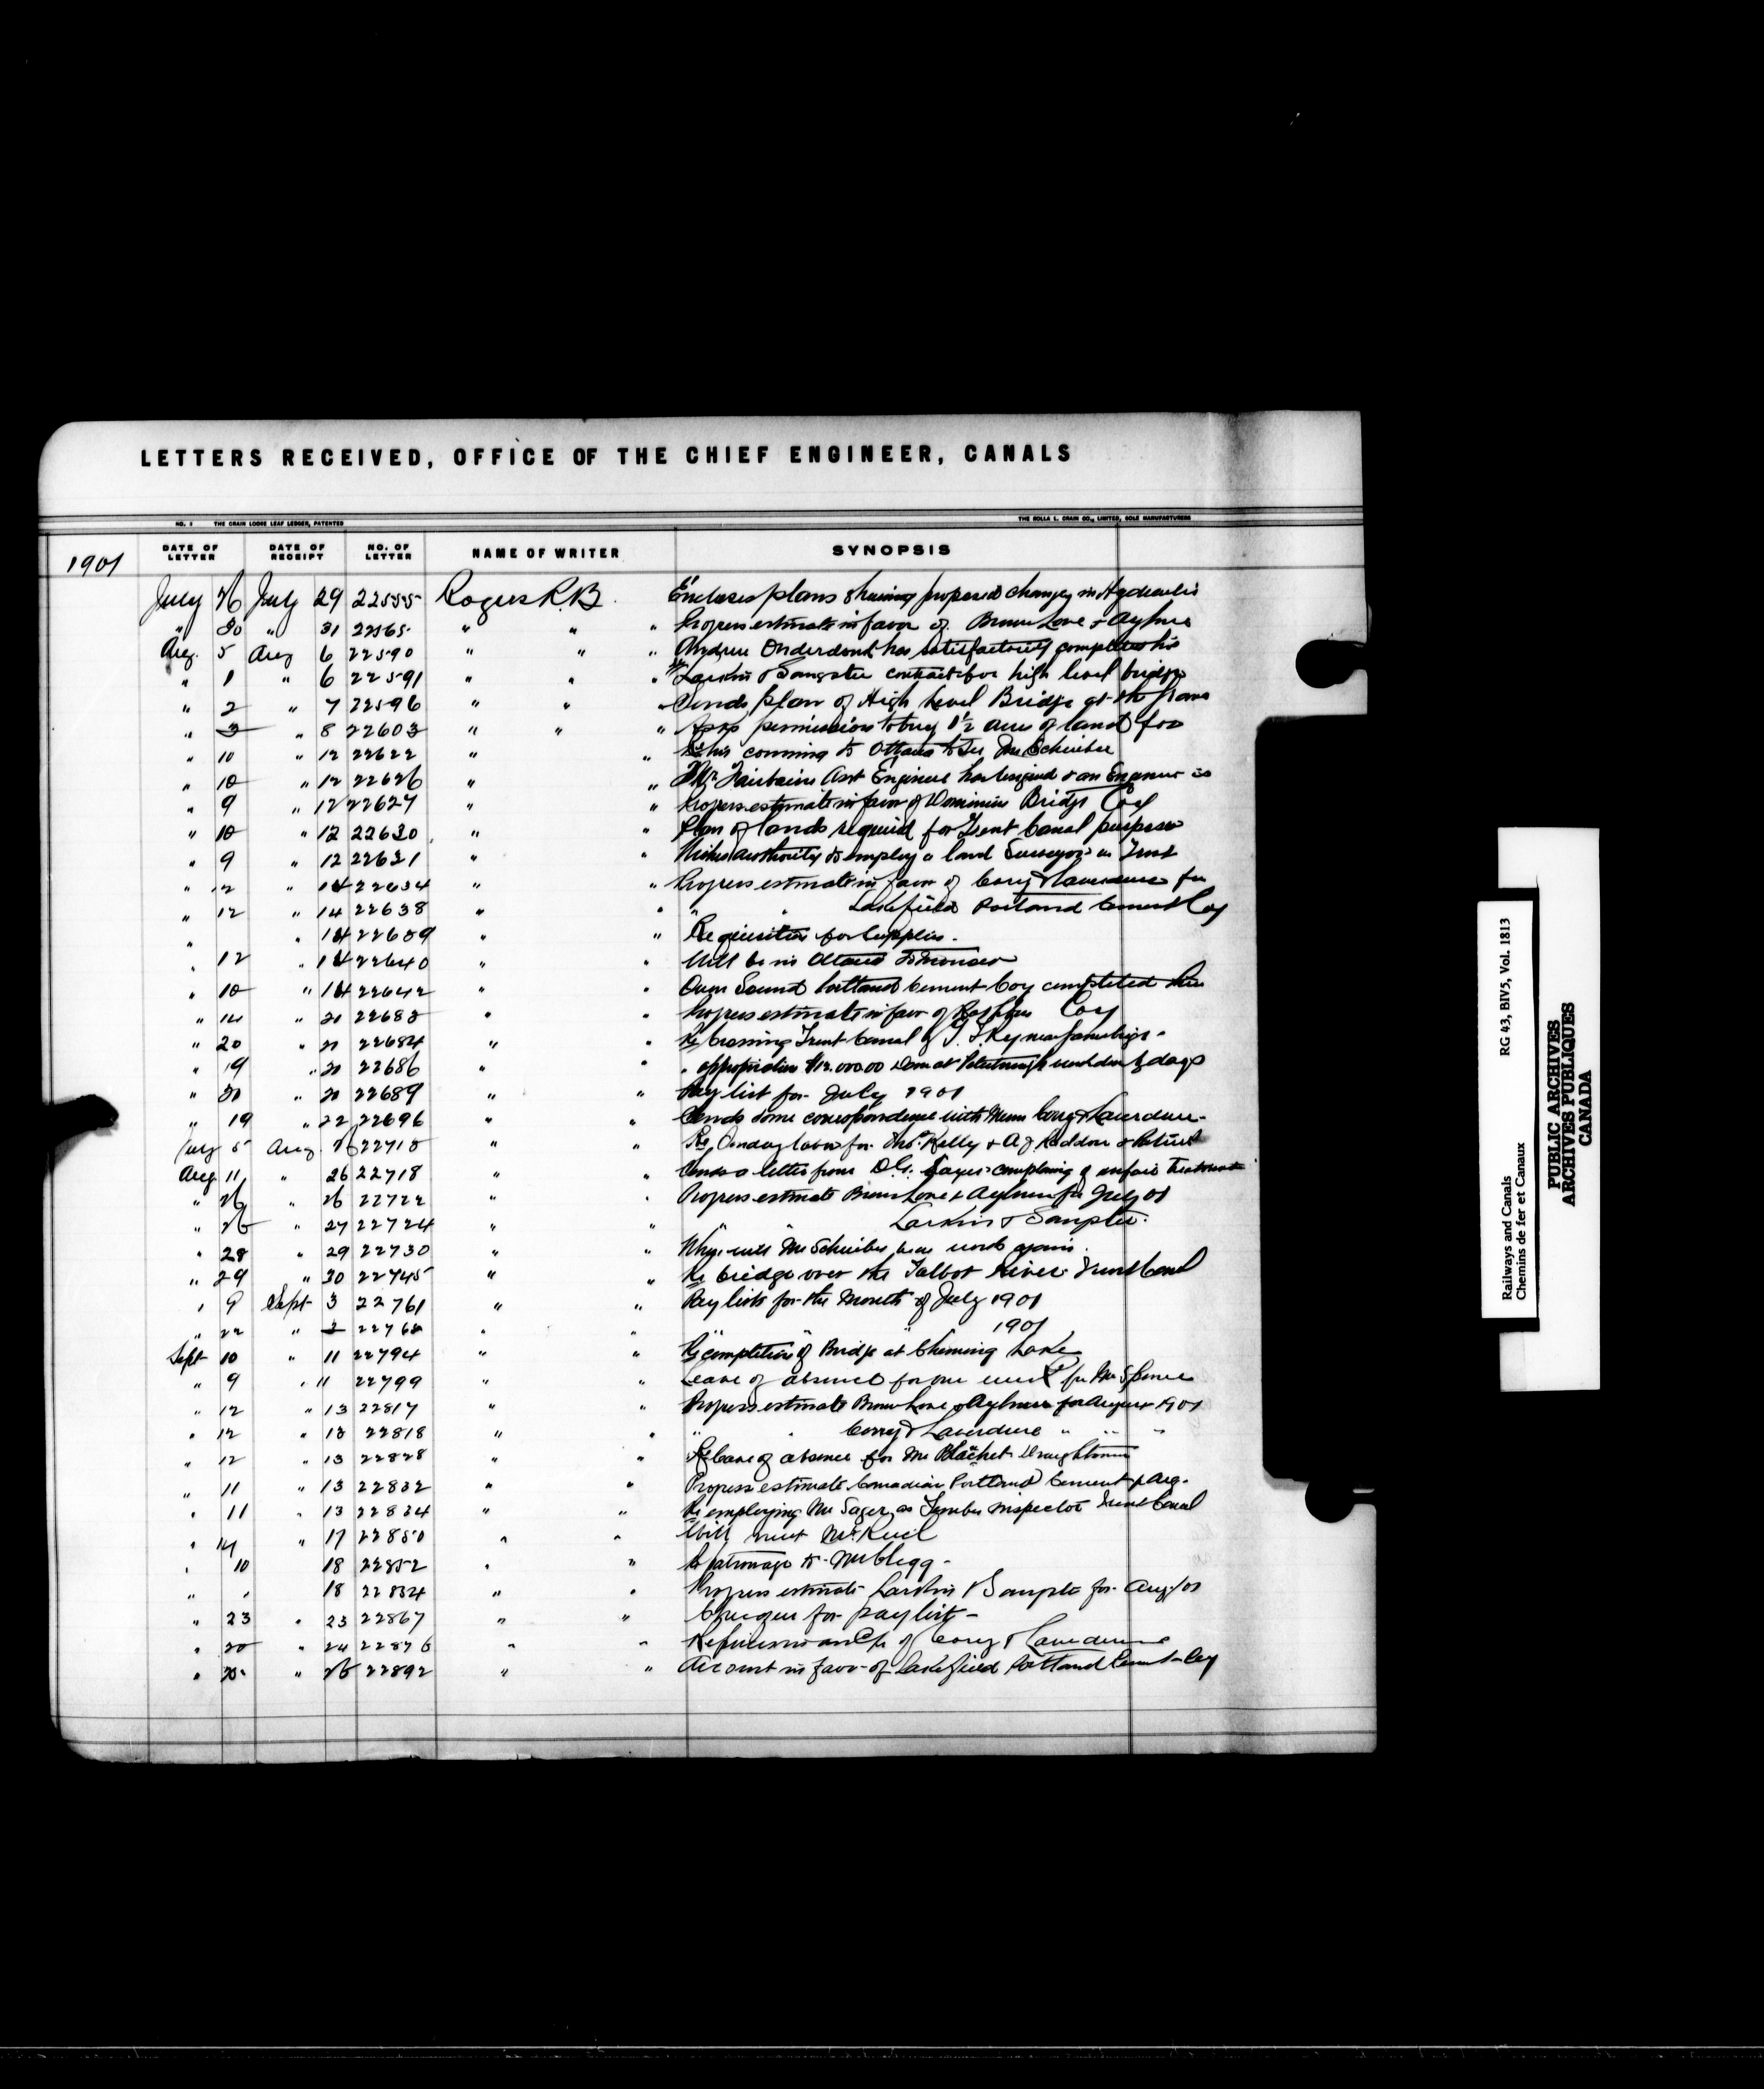 LETTERS RECEIVED, OFFICE OF THE CHIEF ENGINEER, CANALS
NO. 1 THE CRAIN LOOSE LEAF LEDGER, PATENTED THE ROLLA L. CRAIN CO., LIMITED, SOLE MANUFACTURERS
1901 DATE OF LETTER DATE OF RECEIPT NO. OF LETTER NAME OF WRITER SYNOPSIS
July 26 July 29 22555 Rogers R.B. Encloses plans showing proposed changes in Hydraulic
" 30 " 31 22565 " " " Progress estimate in favor of Brown Love & Aylmer
Aug. 5 Aug 6 22590 " " " Andrew Onderdonk has satisfactorily completed his
" 1 " 6 22591 " " " Larkin & Sangster contract for high level bridge
" 2 " 7 22596 " " " Sends plan of High Level Bridge at the
" 3 " 8 22603 " " " Asks permission to buy 1½ acres of land for
" 10 " 12 22622 " " Re his comming to Ottawa to see Mr Schreiber
" 10 " 12 22626 " " Mr Fairbairn Asst Engineer has resigned & an Engineer is
" 9 " 12 22627 " " Progress estimate in favor of Dominion Bridge Coy
" 10 " 12 22630 " " Plan of lands required for Trent Canal purposes
" 9 " 12 22631 " " Wishes authority to employ a land Surveyor on Trent
" 12 " 14 22634 " " Progress estimate in favor of Corry & Laverdure for
" 12 " 14 22638 " " " " Lakefield Portland Cement Coy
" " 14 22639 " " Requisition for Supplies.
" 12 " 14 22640 " " Will be in Ottawa tomorrow
" 10 " 14 22642 " " Owen Sound Portland Cement Coy completed their
" 14 " 21 22683 " " Progress estimate in favor of Rathbun Coy
" 20 " 21 22684 " " Re Crossing Trent Canal by G. T. Ry near
" 19 " 20 22686 " " " appropriation \$12.000.00 Dam at Peterborough
" 20 " 21 22689 " " Pay list for July 1901
" 19 22 22696 " " Sends some correspondence with Messrs Corry & Laverdure
July 5 Aug 26 22718 " " Re Sunday labor for Thos Kelly & A J
Aug 11 " 26 22718 " " Sends a letter from D.G. Sager complaining of unfair treatment
" 26 " 26 22722 " " Progress estimate Brown Love & Aylmer for July 01
" 26 " 27 22724 " " " " Larkin & Sangster.
" 28 " 29 22730 " " When will Mr Schreiber be in town again.
" 29 " 30 22745 " " Re bridge over the Talbot River Trent Canal
" 9 Sept 3 22761 " " Pay lists for the Month of July 1901
" 22 " 3 22768 " " " " " 1901
Sept 10 " 11 22794 " " Re completion of Bridge at Chemong Lake
" 9 " 11 22799 " " Leave of absence for one week for Mr Spence
" 12 " 13 22817 " " Progress estimate Brown Love & Aylmer for August 1901
" 12 " 13 22818 " " " " Corry & Laverdure " " "
" 12 " 13 22828 " " Re leave of absence for Mr Blachet Draughtsman
" 11 " 13 22832 " " Progress estimate Canadian Portland Cement Aug.
" 11 " 13 22834 " " Re employing Mr Sager as Timber inspector Trent Canal
" 14 " 17 22850 " " Will meet Mr
" 10 18 22852 " " Re patronage to Mr Clegg -
" " 18 22854 " " Progress estimate Larkin & Sangster for Aug/01
" 23 " 23 22867 " " Cheques for pay list -
" 20 " 24 22876 " " of Corry & Laverdure
" 25 " 26 22892 " " Account in favor of Lakefield Portland Cement Coy
Railways and Canals RG 43, BIV5, Vol. 1813
Chemins de fer et Canaux
PUBLIC ARCHIVES
ARCHIVES PUBLIQUES
CANADA